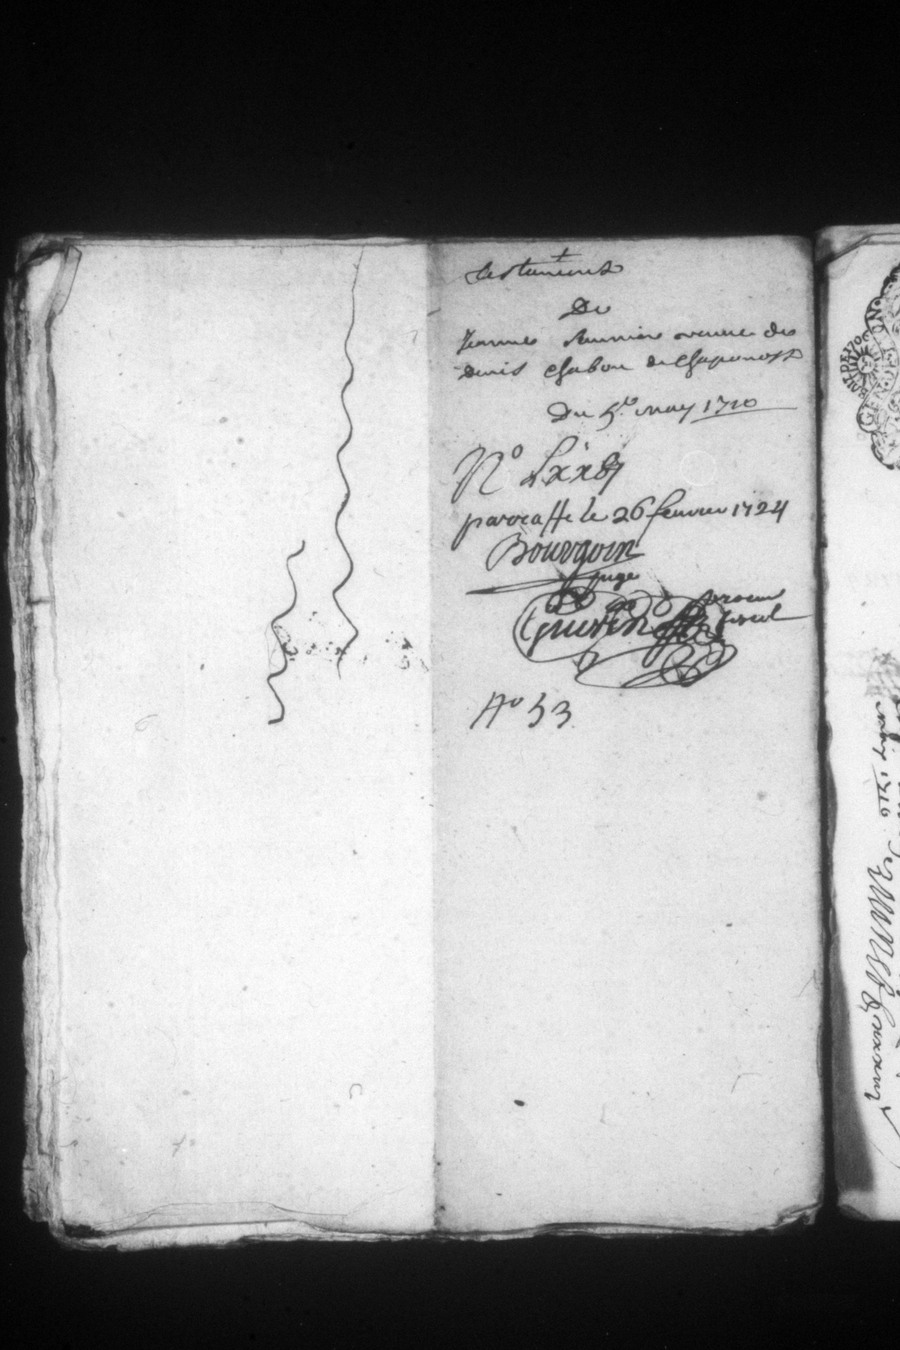 Testament
De
Jeanne veuve de
Denis Chabou de Chaponost
Du 5e may 1710
No Lxx8
paraffé le 26 fevrier 1724
Bourgoin
juge
Guerin procur
fiscal
No 53
may 1710